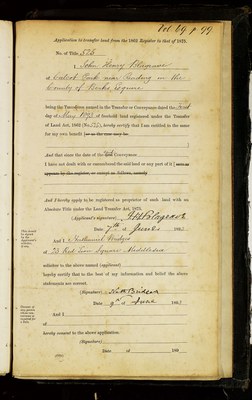 Vol. 69 p 99
Application to transfer land from the 1862 Register to that of 1875.
No. of Title, 575
I John Henry Blagrave
of Calcot Park near Reading in the
County of Berks, Esquire
being the Transferee named in the Transfer or Conveyance dated the
day of May 1893 of freehold land registered under the Transfer
of Land Act, 1862 (No. 575), hereby certify that I am entitled to the same
for my own benefit [or as the case may be.
]
And that since the date of the said Conveyance
I have not dealt with or encumbered the said land or any part of it [save as
appears by the register, or except as follows, namely
]
And I hereby apply to be registered as proprietor of such land with an
Absolute Title under the Land Transfer Act, 1875.
(Applicant's signature) J H Blagrave
Date 7th June 1893
And I Nathaniel Bridges
of 23 Red Lion Square Middlesex
solicitor to the above named (applicant)
hereby certify that to the best of my information and belief the above
statements are correct.
(Signature) Nath Bridges
Date 9th June 1893
And I
of
hereby consent to the above application.
(Signature)
Date of 189